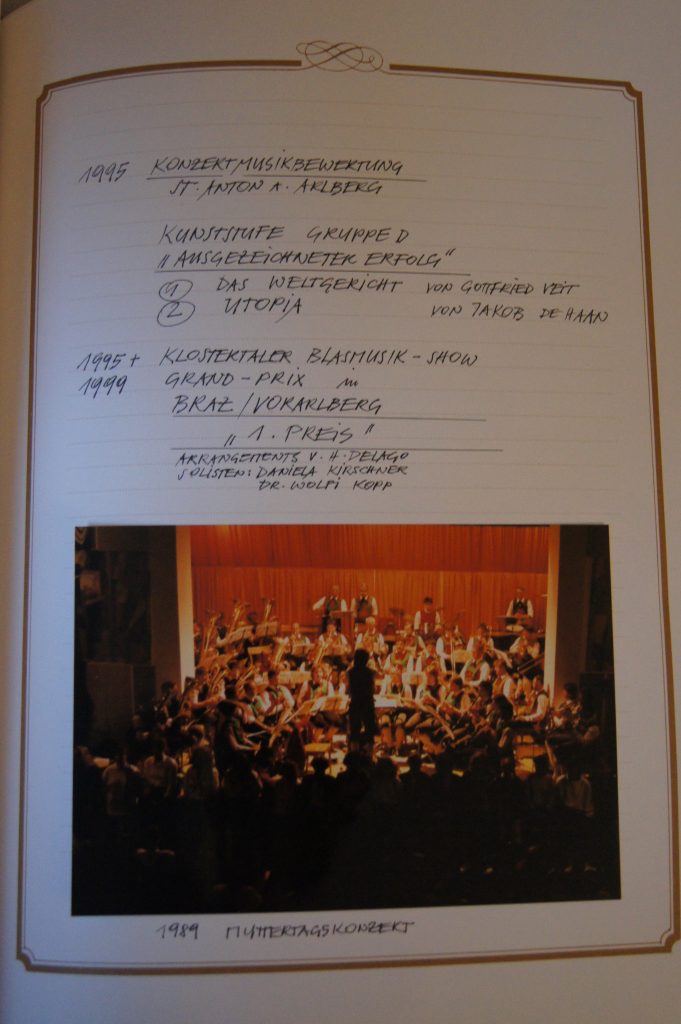 1995 KONZERTMUSIKBEWERTUNG
ST. ANTON A. ARLBERG
KUNSTSTUFE GRUPPE D
„AUSGEZEICHNETER ERFOLG"
1 DAS WELTGERICHT VON GOTTFRIED VEIT
2 UTOPJA VON JAKOB DE HAAN
1995 + KLOSTERTALER BLASMUSIK-SHOW
1999 GRAND-PRIX in
BRAZ/VORARLBERG
„1. PREIS"
ARRANGEMENTS V. H. DELAGO
SOLISTEN: DANIELA KIRSCHNER
DR. WOLFI KOPP
1989 MUTTERTAGSKONZERT